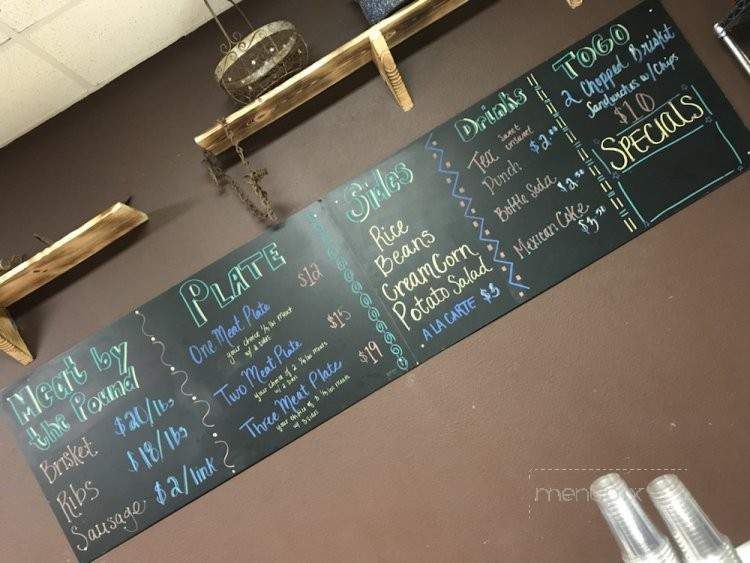 Meat by
the Pound
Brisket $20/lbs
Ribs $18/lbs
Sausage $2/link
PLATE
One Meat Plate $12
your choice 1/2 lbs meat
w/ 2 sides
Two Meat Plate $15
your choice of 2 1/2 lbs meats
w/ 2 sides
Three Meat Plate $19
your choice of 3 1/2 lbs meats
w/ 3 sides
Sides
Rice
Beans
Cream Corn
Potato Salad
A LA CARTE $3
Drinks
Tea sweet
unsweet
Punch $2.00
Bottle Soda $2.00
Mexican Coke
TOGO
2 Chopped Brisket
Sandwiches w/ Chips
$10
SPECIALS
menupix